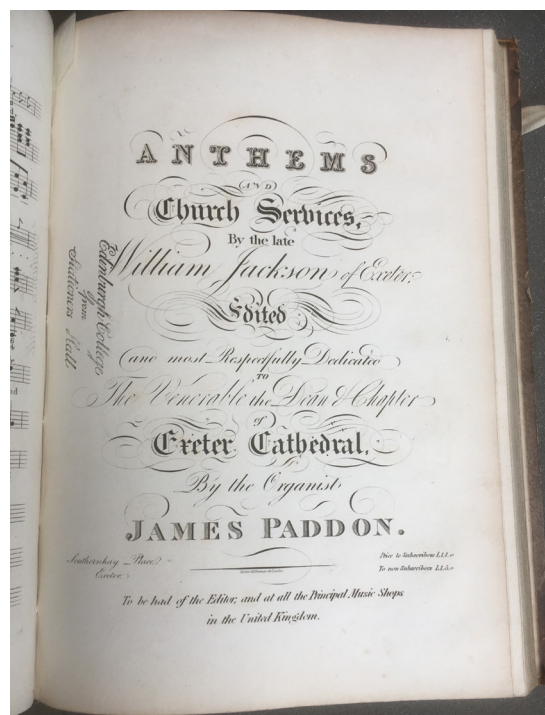 ANTHEMS
AND
Church Services,
By the late
William Jackson of Exeter,
Edited
and most Respectfully Dedicated
TO
The Venerable the Dean & Chapter
of
Exeter Cathedral,
By the Organist,
JAMES PADDON.
Southernhay Place,
Exeter.
Price to Subscribers £.1.1.0
To non Subscribers £.1.5.0
To be had of the Editor, and at all the Principal Music Shops
in the United Kingdom.
Edinburgh College
of
from